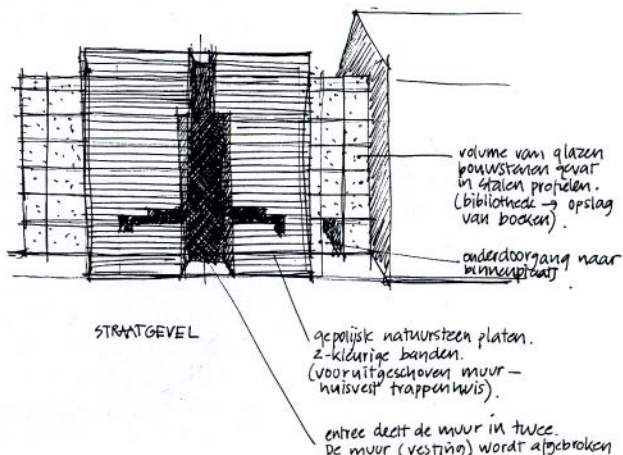 volume van glazen
bouwstenen gevat
in stalen profielen.
(bibliotheek → opslag
van boeken).
onderdoorgang naar
binnenplaats
STRAATGEVEL
gepolijsk natuursteen platen.
2-kleurige banden.
(vooruitgeschoven muur –
huisvest trappenhuis).
entree deelt de muur in twee.
De muur (vesting) wordt afgebroken